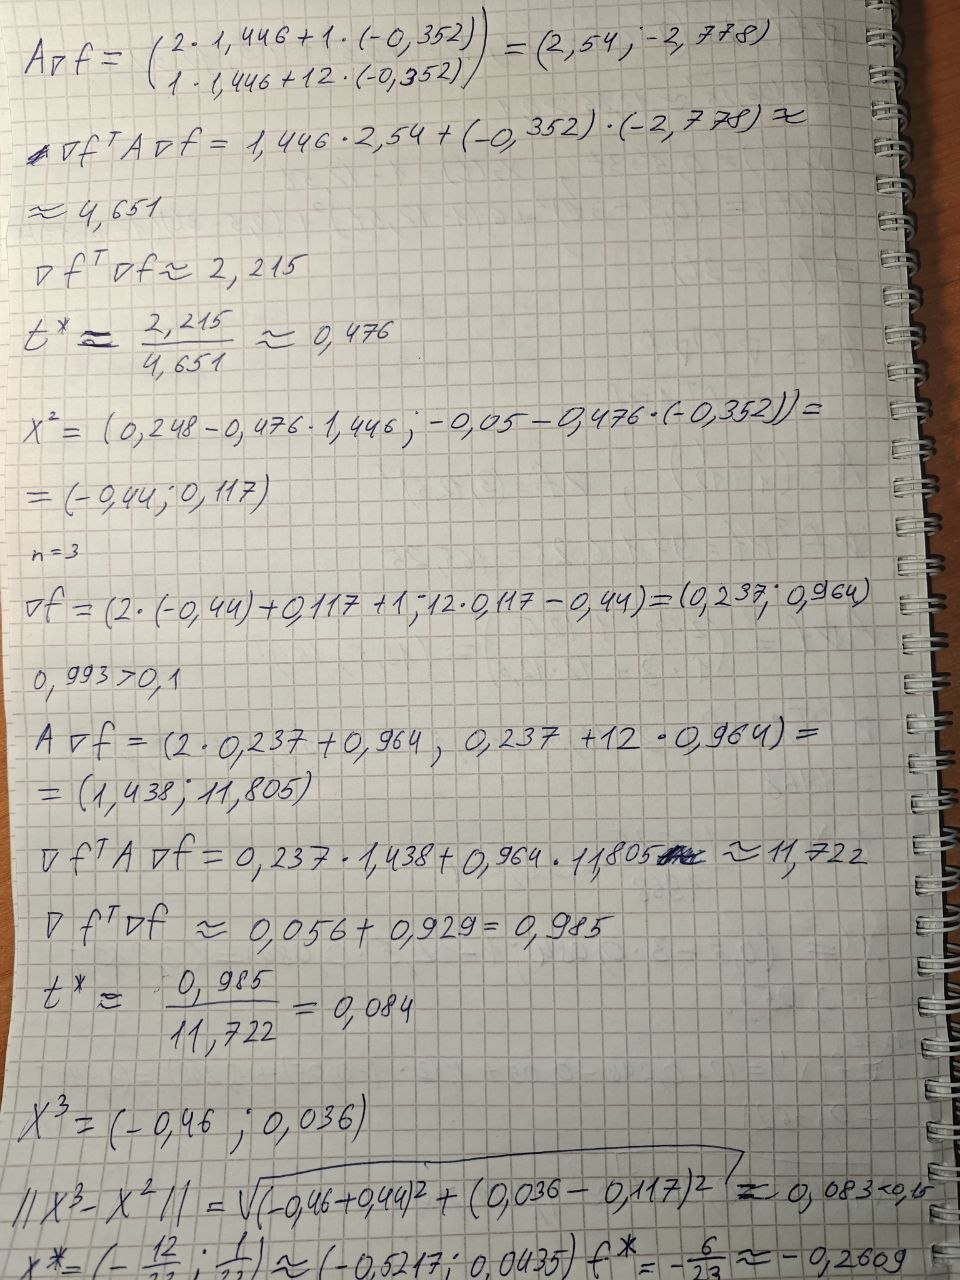 A∇f = (2·1,446+1·(-0,352) = (2,54; -2,778)
1·1,446+12·(-0,352))
∇fᵀA∇f = 1,446·2,54+(-0,352)·(-2,778) ≈
≈ 4,651
∇fᵀ∇f ≈ 2,215
t* ≈ 2,215/4,651 ≈ 0,476
x² = (0,248-0,476·1,446; -0,05-0,476·(-0,352)) =
= (-0,44; 0,117)
n=3
∇f = (2·(-0,44)+0,117+1; 12·0,117-0,44) = (0,237; 0,964)
0,993>0,1
A∇f = (2·0,237+0,964; 0,237+12·0,964) =
= (1,438; 11,805)
∇fᵀA∇f = 0,237·1,438+0,964·11,805 ≈ 11,722
∇fᵀ∇f ≈ 0,056+0,929 = 0,985
t* ≈ 0,985/11,722 = 0,084
x³ = (-0,46; 0,036)
||x³-x²|| = √((-0,46+0,44)²+(0,036-0,117)²) = 0,083<0,15
x* = (-12/23; 1/23) ≈ (-0,5217; 0,0435) f* = -6/23 ≈ -0,2609